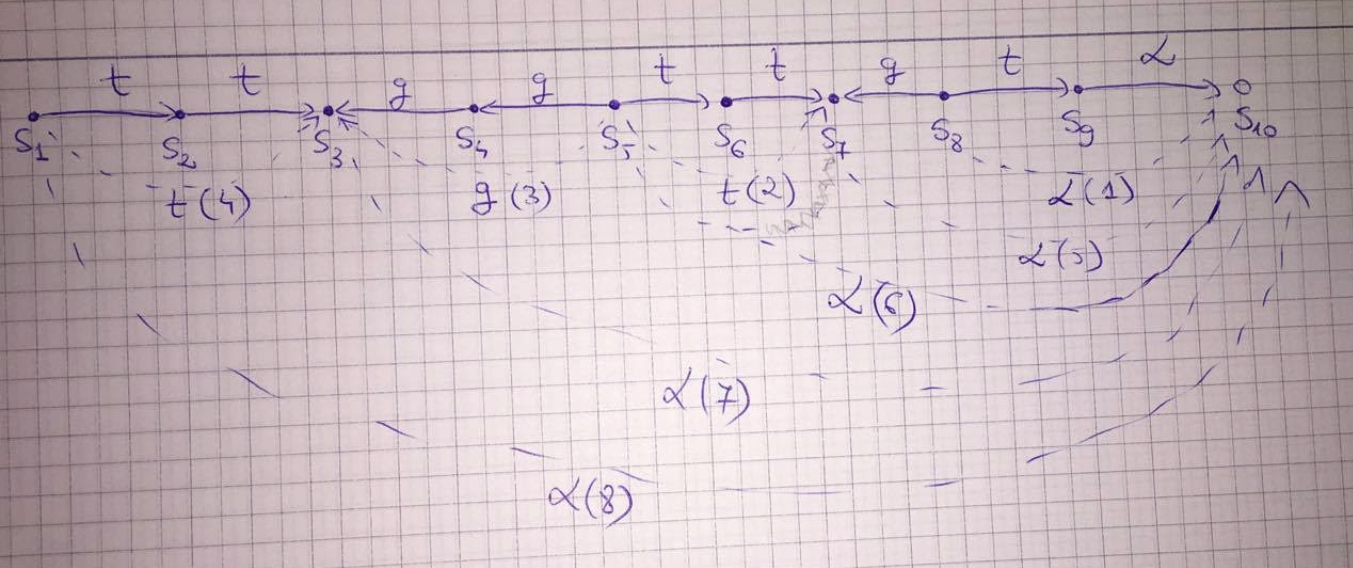 t t g g t t g t α
S1 S2 S3 S4 S5 S6 S7 S8 S9 S10
t(4) g(3) t(2) α(1)
α(5)
α(6)
α(7)
α(8)